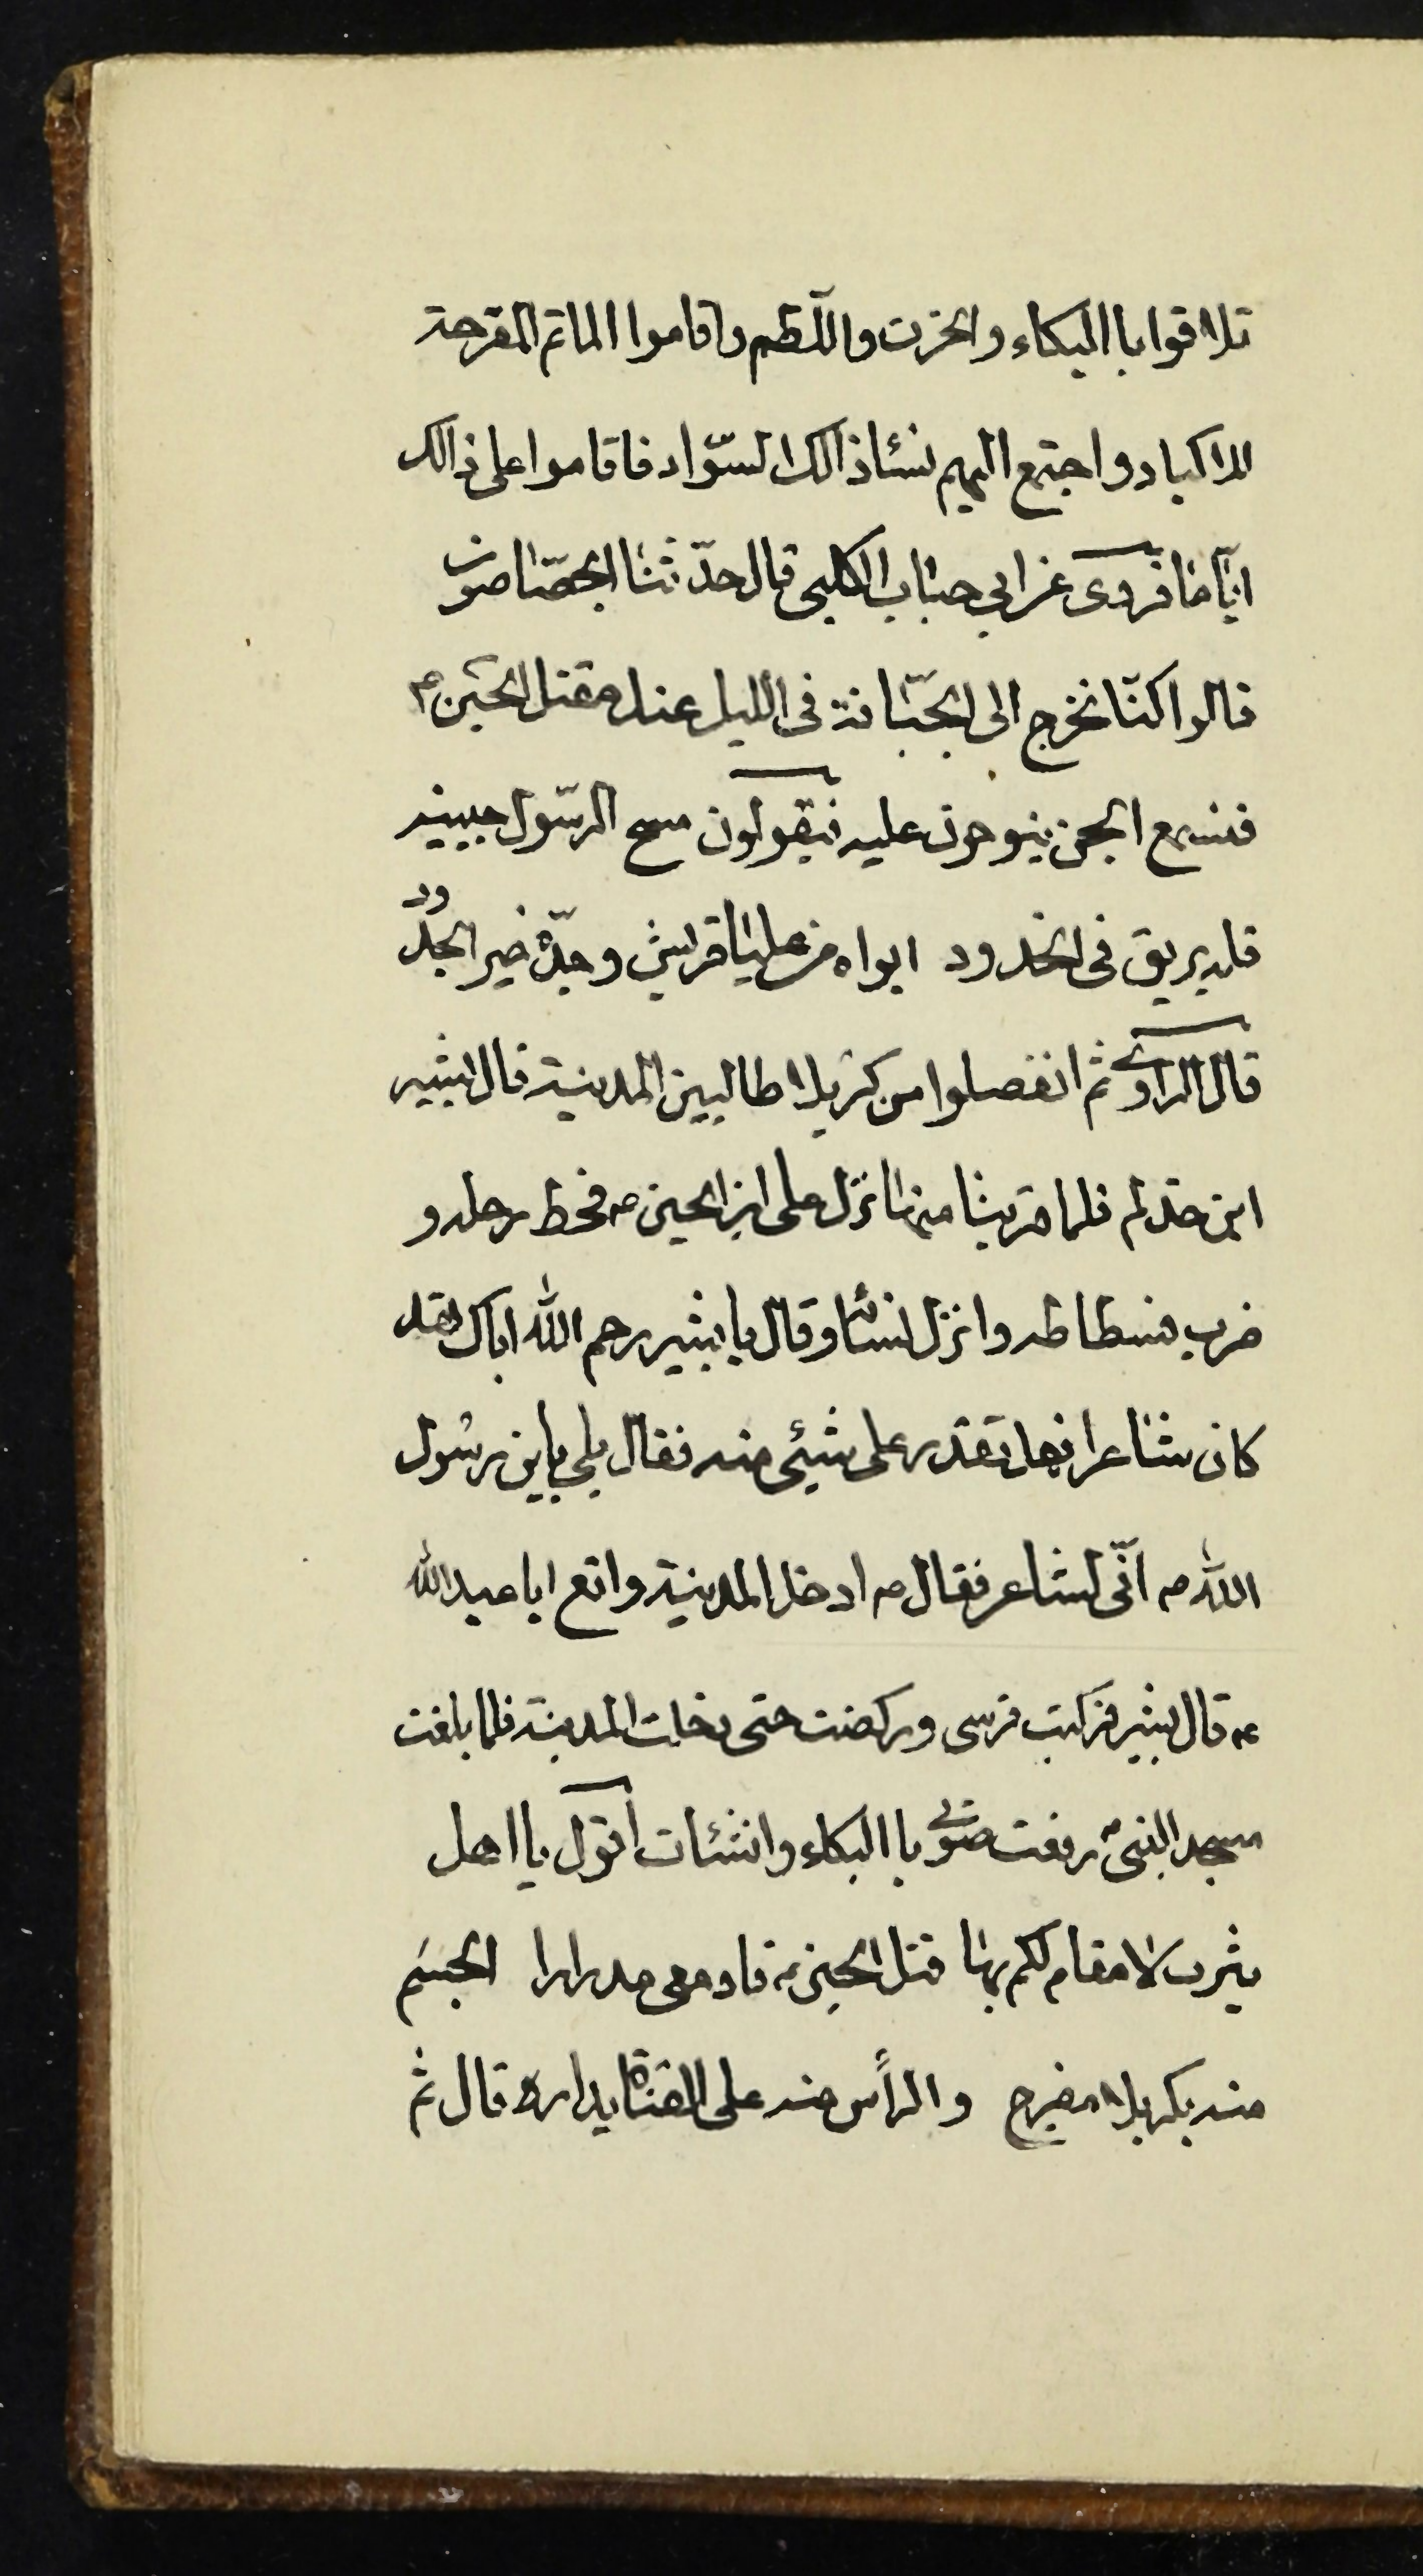 تلاقوا باالبكاء والحزن واللّطم واقاموا الماتم المقرحة
للاكباد واجتمع اليهم نسٔا ذالك السّواد فاقاموا على ذالك
ايّاما فروى عن ابي حباب الكلبى قال حدّثنا الجصّاصون
قالوا كنّا نخرج الى الجبّانة فى الليل عند مقتل الحسين ع
فنسمع الجن ينوحون عليه فيقولون مسح الرسّول جبينه
فله بريق فى الخدود ابواه من عليا قريش وجدّه خير الجدود
قال الراوى ثم انفصلوا من كربلا طالبين المدينة قال بشير
ابن حذلم فلما قربنا منها نزل على ابن الحسين ع فحط رحله و
ضرب فسطاطه وانزل نسائه وقال يا بشير رحم الله اباك لقد
كان شاعرا فهل تقدر على شيئى منه فقال بلى يابن رسول
الله ص انّى لشاعر فقال ع ادخل المدينة وانع ابا عبدالله
ع قال بشير فركبت فرسى وركضت حتى دخلت المدينة فلما بلغت
مسجد النبى ص رفعت صوتى باالبكاء وانشئات اقول يااهل
يثرب لا مقام لكم بها قتل الحسين ع فادمعى مدرارا الجسم
منه بكربلا مضرج والرأس منه على القناة يداره قال ثم